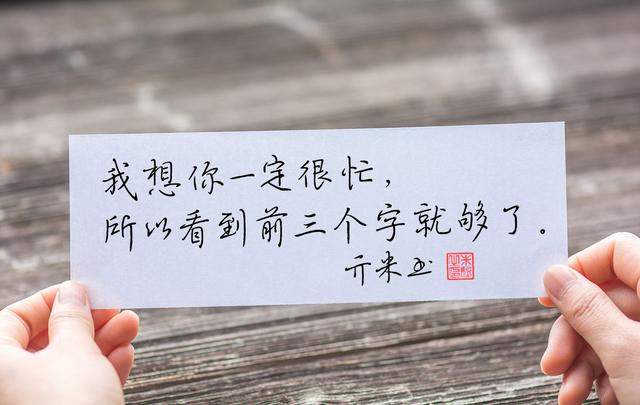 我想你一定很忙，
所以看到前三个字就够了。
亓米书